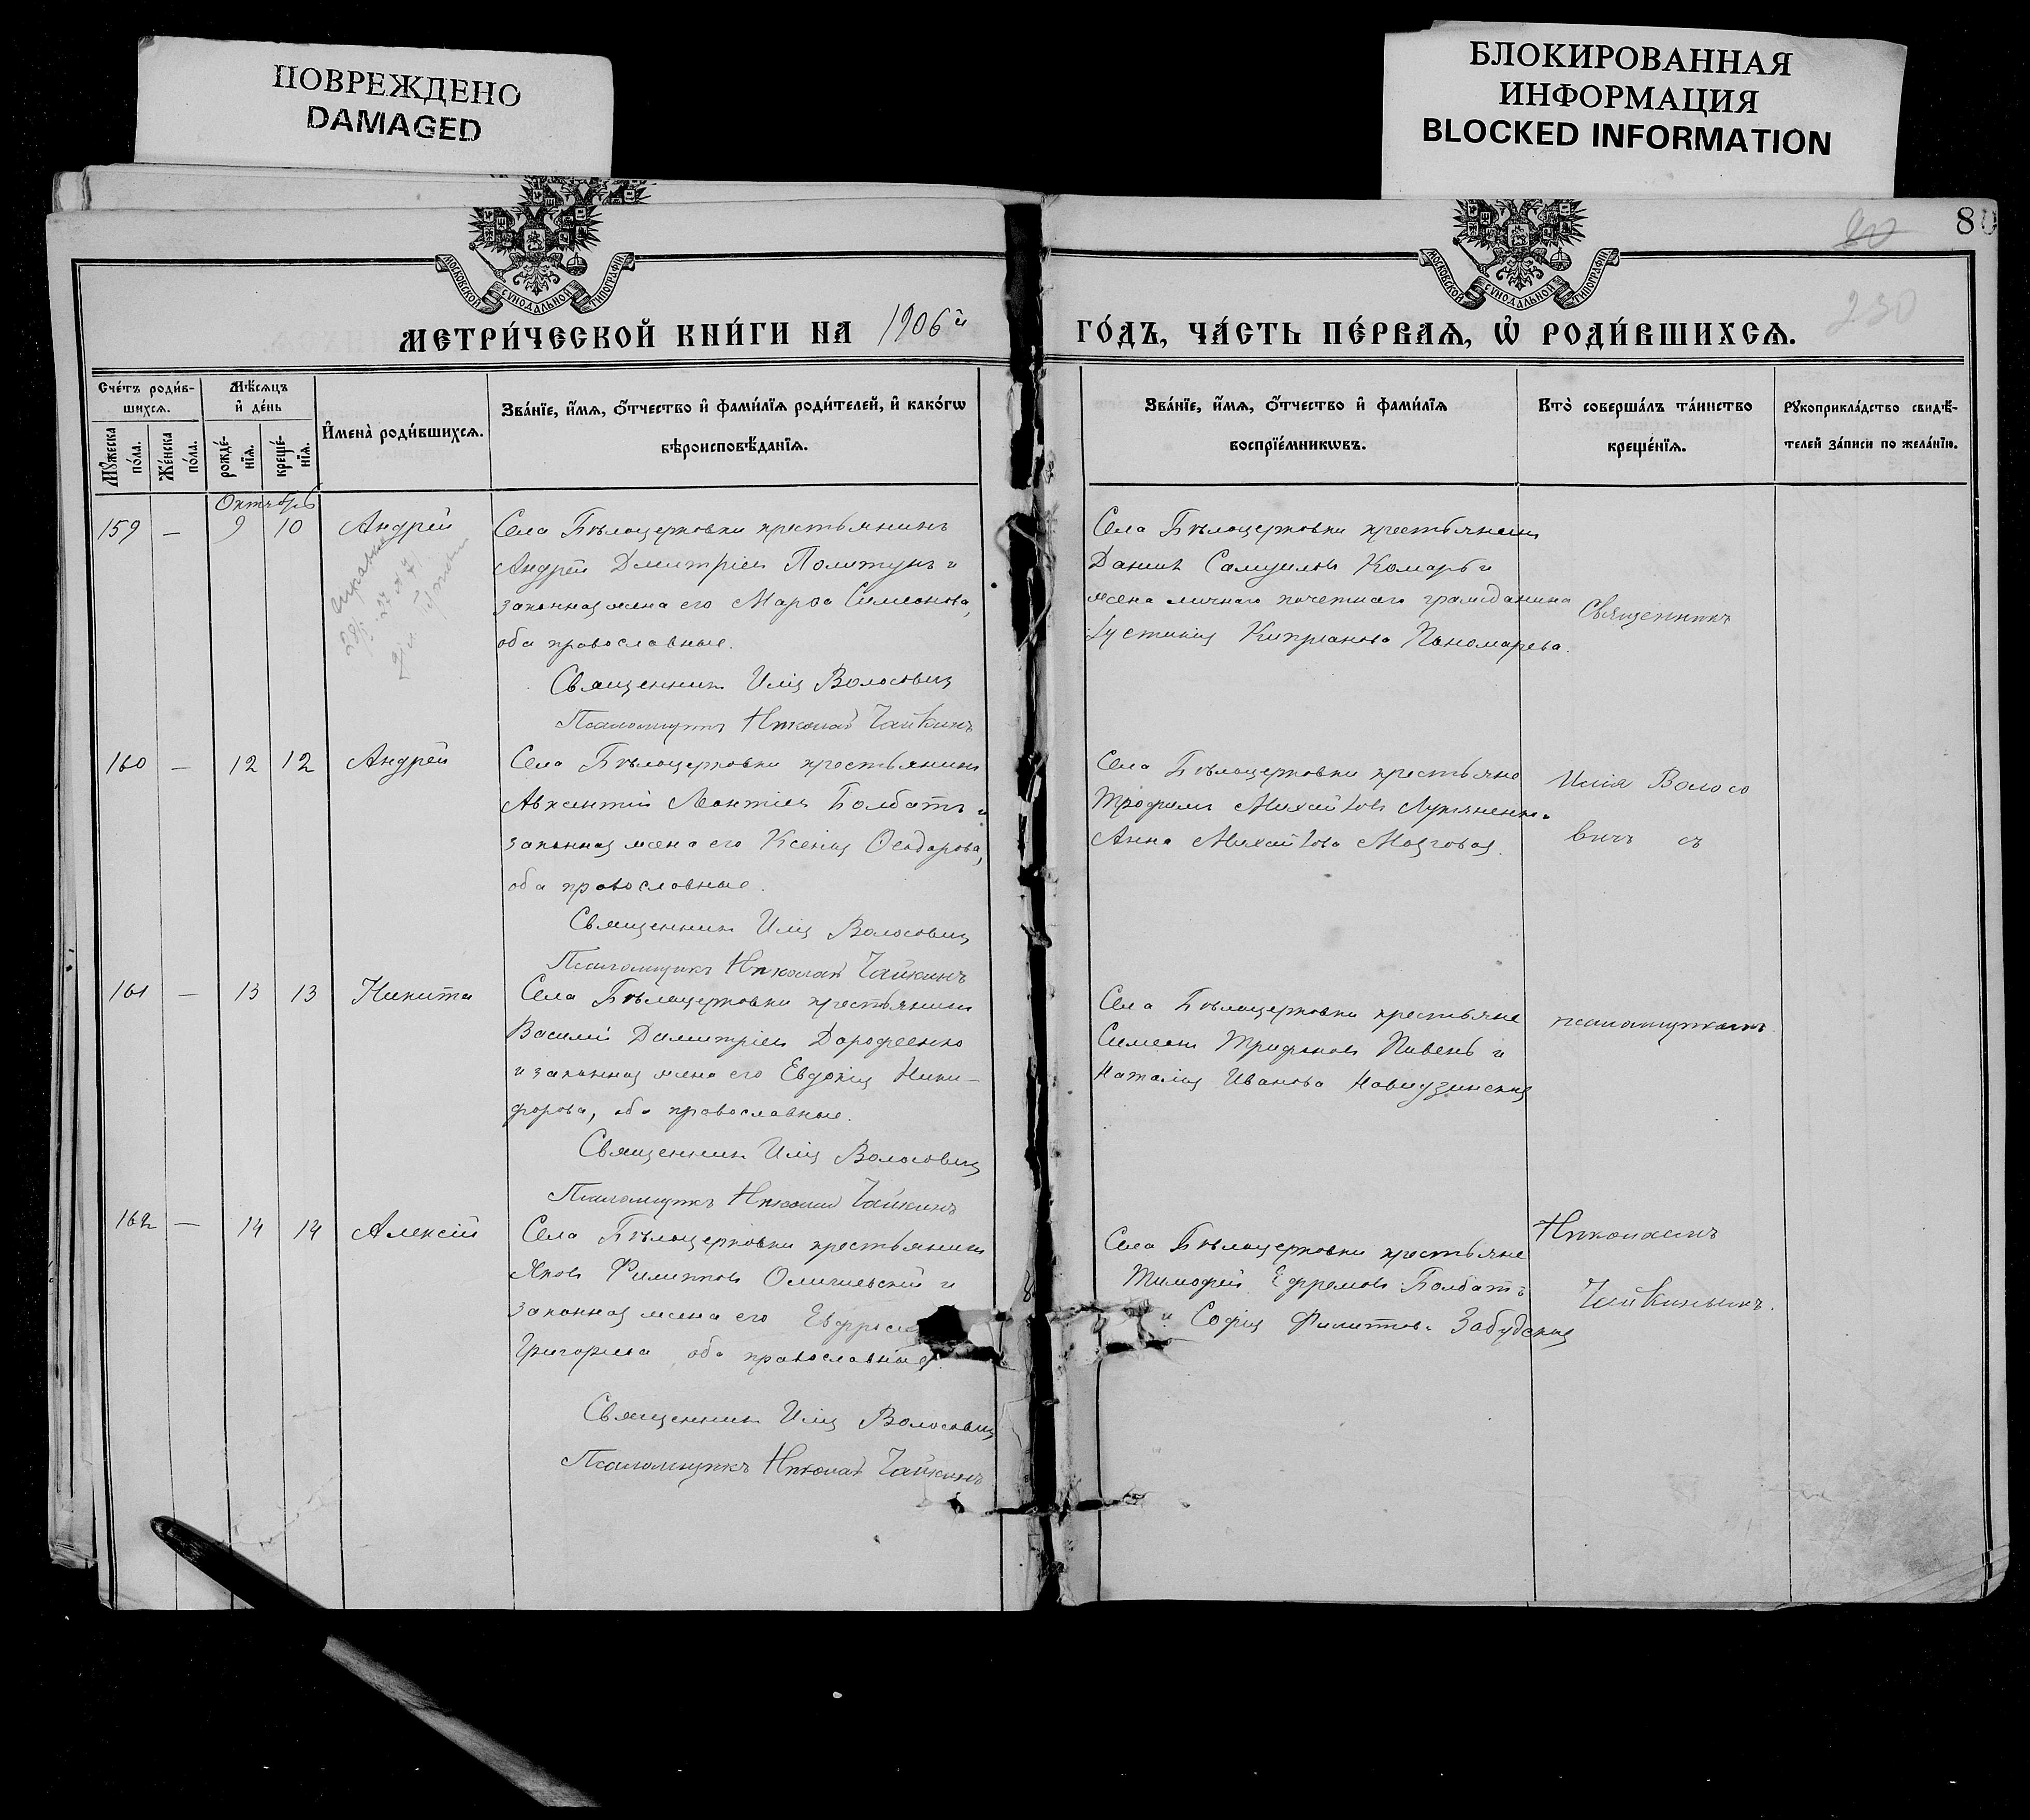 ПОВРЕЖДЕНО
DAMAGED
БЛОКИРОВАННАЯ
ИНФОРМАЦИЯ
BLOCKED INFORMATION
80
230
МОСКОВСКОЙ СѴНОДАЛЬНОЙ ТИПОГРАФІИ
МОСКОВСКОЙ СѴНОДАЛЬНОЙ ТИПОГРАФІИ
МЕТРИ́ЧЕСКОЙ КНИ́ГИ НА 1906й
ГО́ДЪ, ЧА́СТЬ ПЕ́РВАѦ, Ѽ РОДИ́ВШИХСѦ.
Сче́тъ роди́в-
шихсѧ.
Мꙋ́жеска по́ла.
Же́нска по́ла.
Мѣ́сѧцъ
и҆ де́нь
рожде́-нїѧ.
креще́-нїѧ.
И҆мена̀ роди́вшихсѧ.
Зва́нїе, и҆́мѧ, ѻ҆́тчество и҆ фами́лїѧ роди́телей, и҆ како́гѡ
вѣроисповѣ́данїѧ.
Зва́нїе, и҆́мѧ, ѻ҆́тчество и҆ фами́лїѧ
воспрїе́мникѡвъ.
Кто̀ соверша́лъ та́инство
креще́нїѧ.
Рꙋкоприкла́дство свидѣ́-
телей за́писи по жела́нїю.
Октябрь
159 — 9 10 Андрей
Села Бѣлоцерковки крестьянинъ
Андрей Димитріевъ Полтунъ и
законная жена его Марѳа Симеонова,
оба православные.
Священникъ Илія Волосовичъ
Псаломщикъ Николай Чайкинъ
Села Бѣлоцерковки крестьянинъ
Даніилъ Самуиловъ Комаръ и
жена личнаго почетнаго гражданина
Іустинія Кипріанова Пономарева.
Священникъ
160 — 12 12 Андрей
Села Бѣлоцерковки крестьянинъ
Авксентій Леонтіевъ Болбатъ и
законная жена его Ксенія Ѳеодорова,
оба православные.
Священникъ Илія Волосовичъ
Псаломщикъ Николай Чайкинъ
Села Бѣлоцерковки крестьяне
Трофимъ Михайловъ Лукяненко и
Анна Михайлова Мозговая.
Илія Волосо
вичъ съ
161 — 13 13 Никита
Села Бѣлоцерковки крестьянинъ
Василій Димитріевъ Дорофеенко
и законная жена его Евдокія Ники-
форова, оба православные.
Священникъ Илія Волосовичъ
Псаломщикъ Николай Чайкинъ
Села Бѣлоцерковки крестьяне
Симеонъ Трифоновъ Пивень и
Наталія Иванова
псаломщикомъ
162 — 14 14 Алексій
Села Бѣлоцерковки крестьянинъ
Яковъ Филипповъ и
законная жена его
Григорьева, оба православные.
Священникъ Илія Волосовичъ
Псаломщикъ Николай Чайкинъ
Села Бѣлоцерковки крестьяне
Тимофей Ефремовъ Болбатъ
и Софія Филиппова Забудская
Николаемъ
Чайкинымъ.